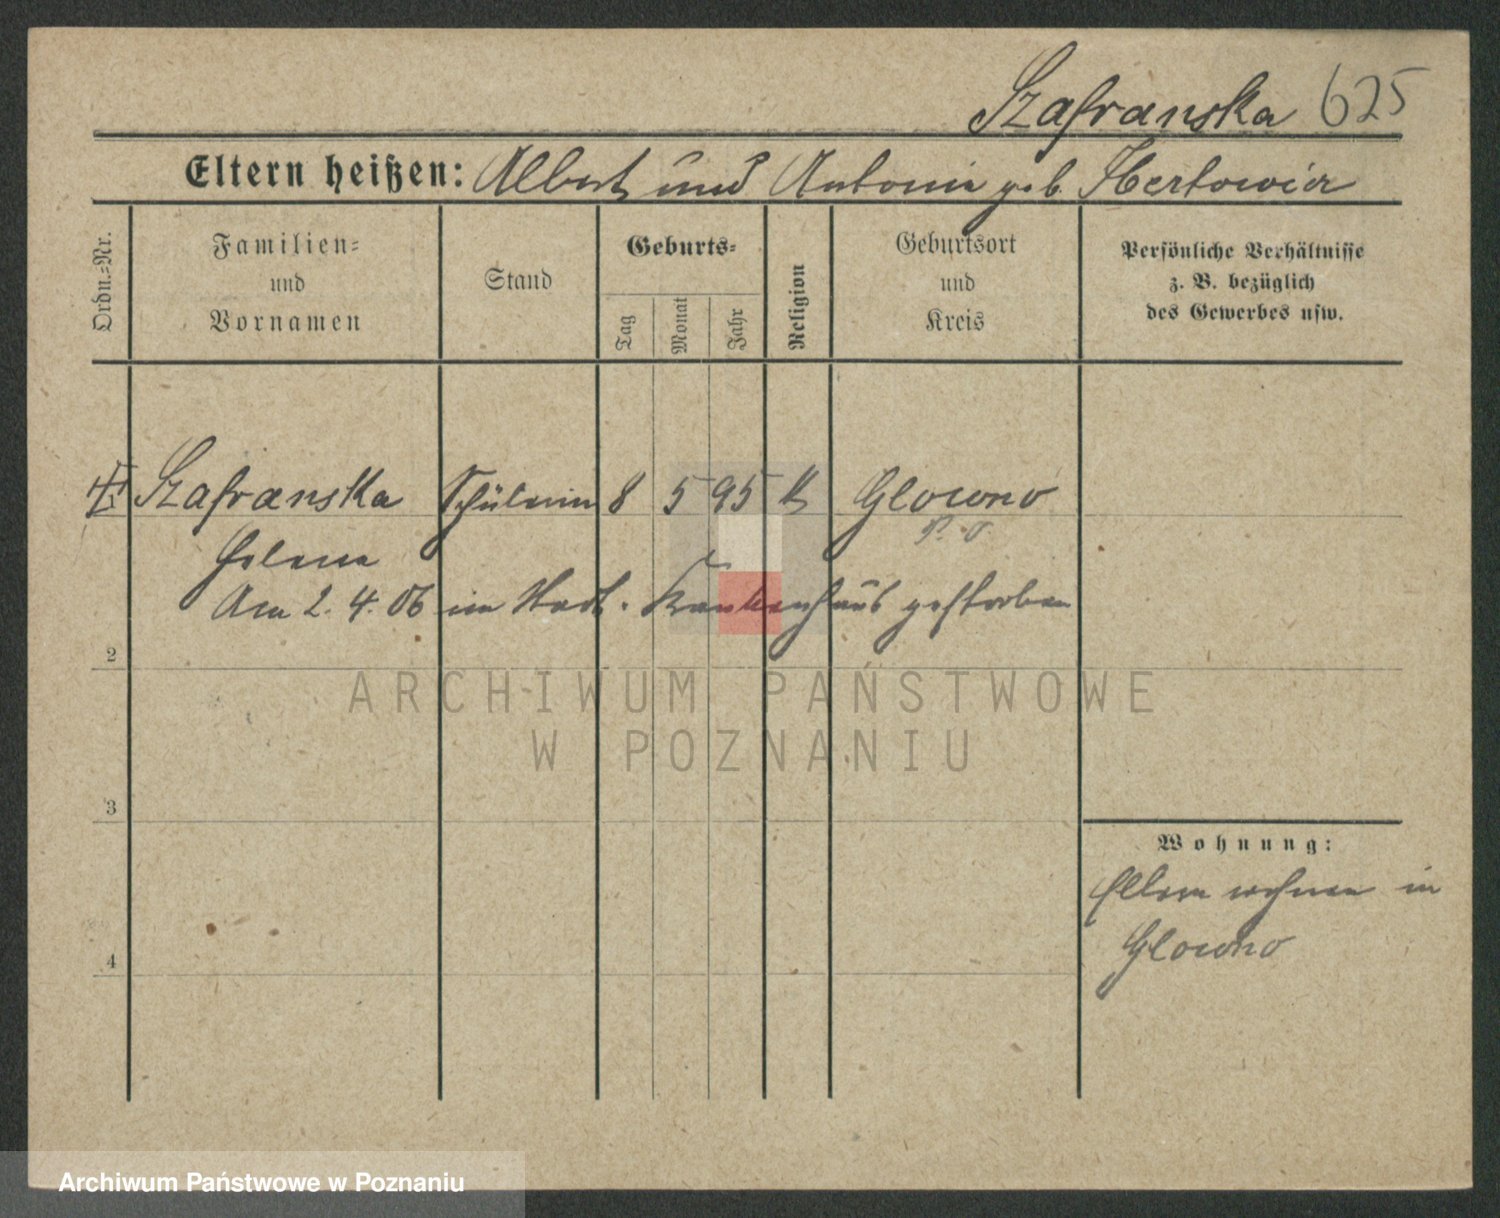 Szafranska 625
Eltern heißen: Albert und Antonie geb.
Ordn.=Nr.
Familien=
und
Vornamen
Stand
Geburts=
Tag
Monat
Jahr
Religion
Geburtsort
und
Kreis
Persönliche Verhältnisse
z. B. bezüglich
des Gewerbes usw.
Szafranska Schülerin 8 5 95 K Glowno
P. O.
Helene
Am 2. 4. 06 im Stadt. Krankenhaus gestorben
2
ARCHIWUM PAŃSTWOWE
W POZNANIU
3
Wohnung:
Eltern wohnen in
Glowno
4
Archiwum Państwowe w Poznaniu